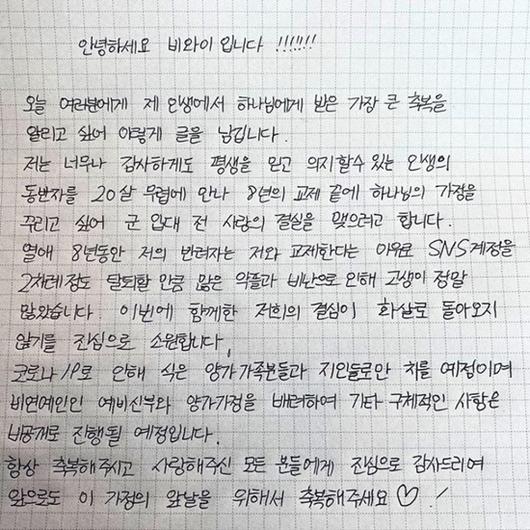 안녕하세요 비와이 입니다 !!!!!!!
오늘 여러분에게 제 인생에서 하나님에게 받은 가장 큰 축복을
알리고 싶어 이렇게 글을 남깁니다.
저는 너무나 감사하게도 평생을 믿고 의지할수 있는 인생의
동반자를 20살 무렵에 만나 8년의 교제 끝에 하나님의 가정을
꾸리고 싶어 군 입대 전 사랑의 결실을 맺으려고 합니다.
연애 8년동안 저의 반려자는 저와 교제한다는 이유로 SNS계정을
2차례 정도 탈퇴할 만큼 많은 악플과 비난으로 인해 고생이 정말
많았습니다. 이번에 함께한 저희의 결심이 화살로 돌아오지
않기를 진심으로 소원합니다.
코로나19로 인해 식은 양가가족분들과 지인들로만 치를 예정이며
비연예인인 예비신부와 양가가정을 배려하여 기타 구체적인 사항은
비공개로 진행될 예정입니다.
항상 축복해주시고 사랑해주신 모든 분들에게 진심으로 감사드리며
앞으로도 이 가정의 앞날을 위해서 축복해주세요 ♡ !